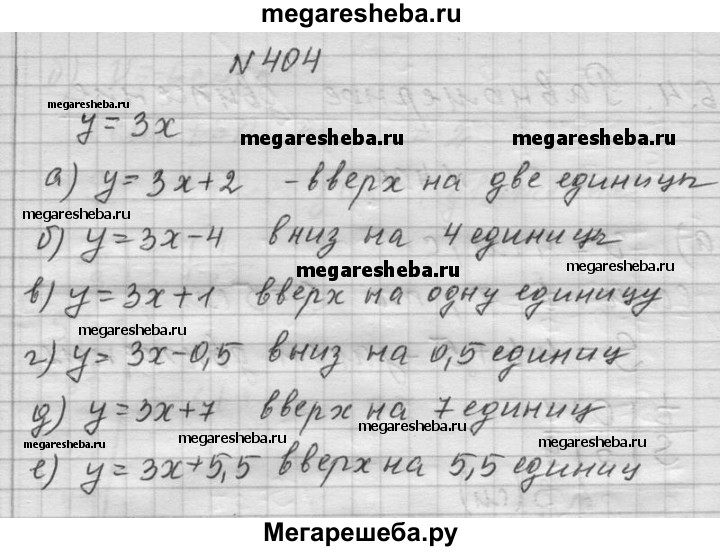 megaresheba.ru
N 404
megaresheba.ru
y = 3x
megaresheba.ru
megaresheba.ru
а) y = 3x + 2 - вверх на две единицы
megaresheba.ru
б) y = 3x - 4 вниз на 4 единицы
megaresheba.ru
megaresheba.ru
в) y = 3x + 1 вверх на одну единицу
megaresheba.ru
megaresheba.ru
г) y = 3x - 0,5 вниз на 0,5 единиц
д) y = 3x + 7 вверх на 7 единиц
megaresheba.ru
megaresheba.ru
megaresheba.ru
е) y = 3x + 5,5 вверх на 5,5 единиц
Мегарешеба.ру